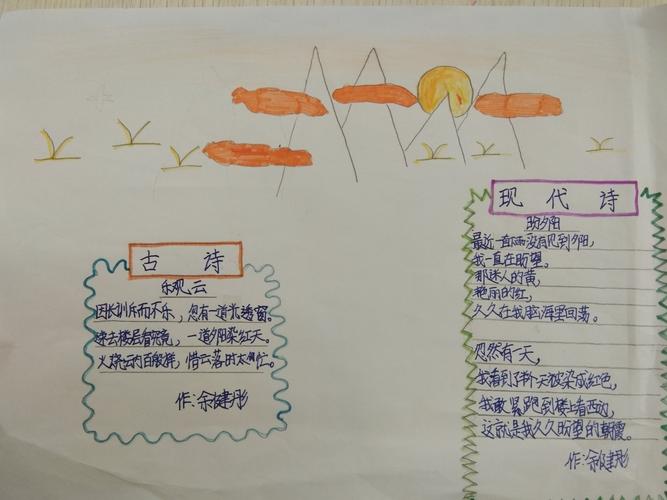 古 诗
乐观云
因长训斥而不乐，忽有一道光透窗。
速去楼层看究竟，一道夕阳染红天。
火烧云内百般样，惜云落时太慌忙。
作：余健彤
现 代 诗
盼夕阳
最近一直 没有见到夕阳，
我一直在盼望。
那迷人的黄，
艳丽的红，
久久在我脑海里回荡。
忽然有一天，
我看到了 天被染成红色，
我敢紧跑到楼上看西边，
这就是我久久盼望的 霞。
作：余健彤